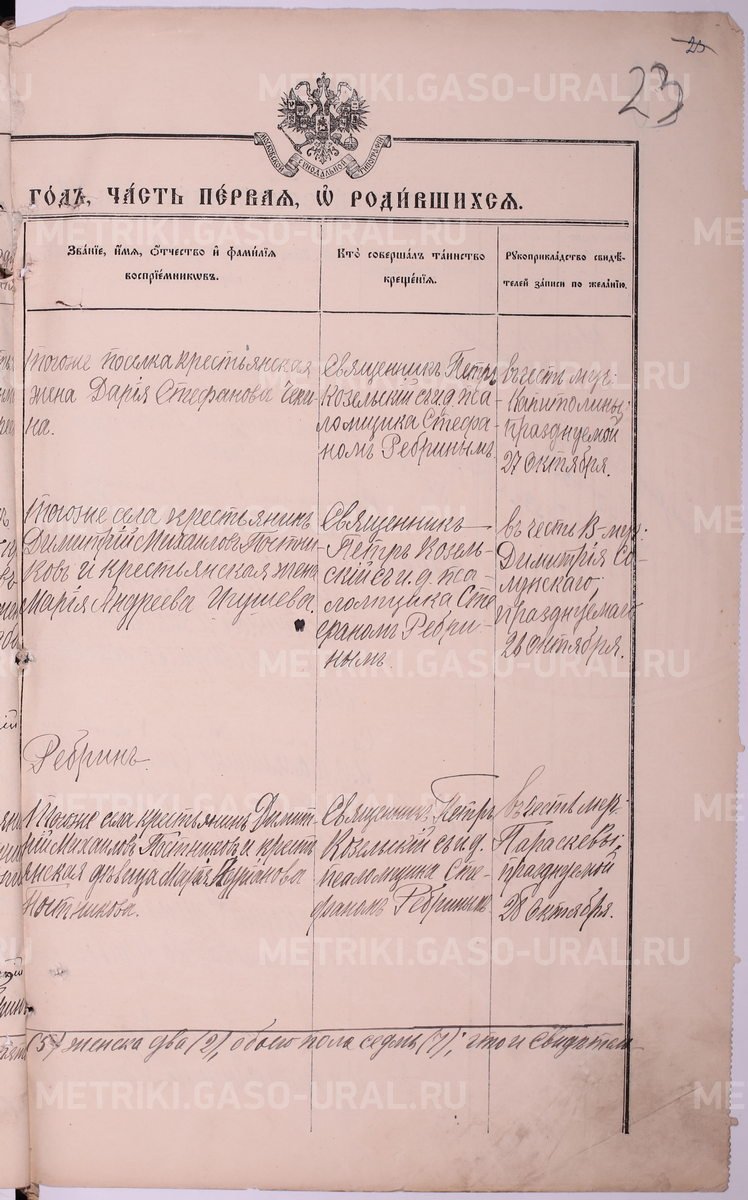 25
23
МОСКОВСКОЙ СѴНОДАЛЬНОЙ ТИПОГРАФІИ
ГОДЪ, ЧАСТЬ ПЕРВАЯ, Ѡ РОДИВШИХСЯ.
Званіе, имя, отчество и фамилія
воспріемниковъ.
Кто совершалъ таинство
крещенія.
Рукоприкладство свидѣ-
телей записи по желанію.
Тогоже поселка крестьянская
жена Дарія Стефанова
на.
Священникъ Петръ
Козельскій съ и д пса-
ломщика Стефа-
номъ Ребринымъ
въ честь муч.
Капитолины,
празднуемой
27 Октября.
Тогоже села крестьянинъ
Димитрій Михаиловъ Постни-
ковъ и крестьянская жена
Марія Андреева Игушева.
Священникъ
Петръ Козель-
скій съ и. д. пса-
ломщика Сте
фаномъ Ребри-
нымъ
въ честь В-муч.
Димитрія Со-
лунскаго,
празднуемаго
26 Октября.
Ребринъ.
Тогоже села крестьянинъ Димит-
рій Михаиловъ Постниковъ и кресть
янская дѣвица Марія
Постникова.
Священникъ Петръ
Козельскій съ и д.
псаломщика Сте-
фаномъ Ребринымъ
въ честь муч.
Параскевы,
празднуемой
28 Октября.
(5) женска два (2), обоего пола седмь (7); что и свидѣтель-
METRIKI.GASO-URAL.RU